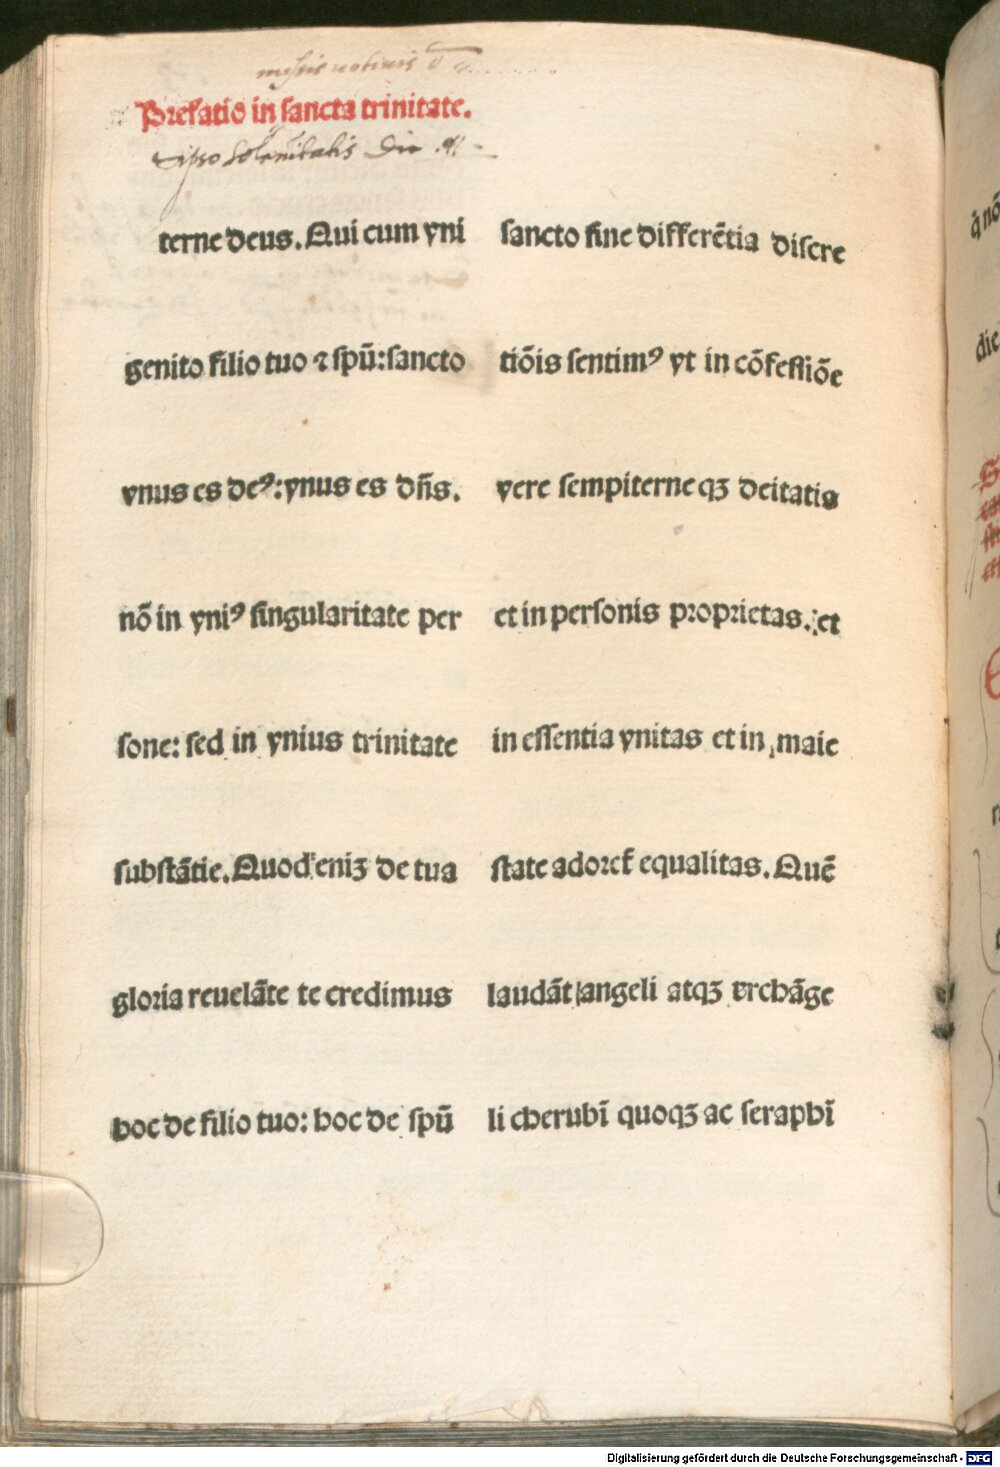 missis votivis
Prefatio in sancta trinitate.
solennitatis
terne deus. Qui cum vni
genito filio tuo ⁊ spũ: sancto
vnus es deꝰ: vnus es dñs.
nõ in vniꝰ singularitate per
sone: sed in vnius trinitate
substãtie. Quod eniʒ de tua
gloria reuelãte te credimus
hoc de filio tuo: hoc de spũ
sancto sine differẽtia discre
tiõis sentimꝰ vt in cõfessiõe
vere sempiterne qʒ deitatis
et in personis proprietas. et
in essentia vnitas et in maie
state adoret̃ equalitas. Quẽ
laudãt angeli atqʒ archãge
li cherubĩ quoqʒ ac seraphĩ
q̃ nõ
die
Digitalisierung gefördert durch die Deutsche Forschungsgemeinschaft - DFG